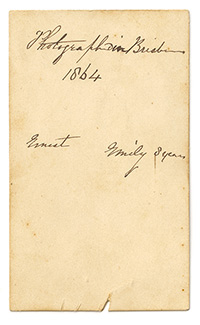 Photographed in Brisbane
1864
Ernest Emily 8 years